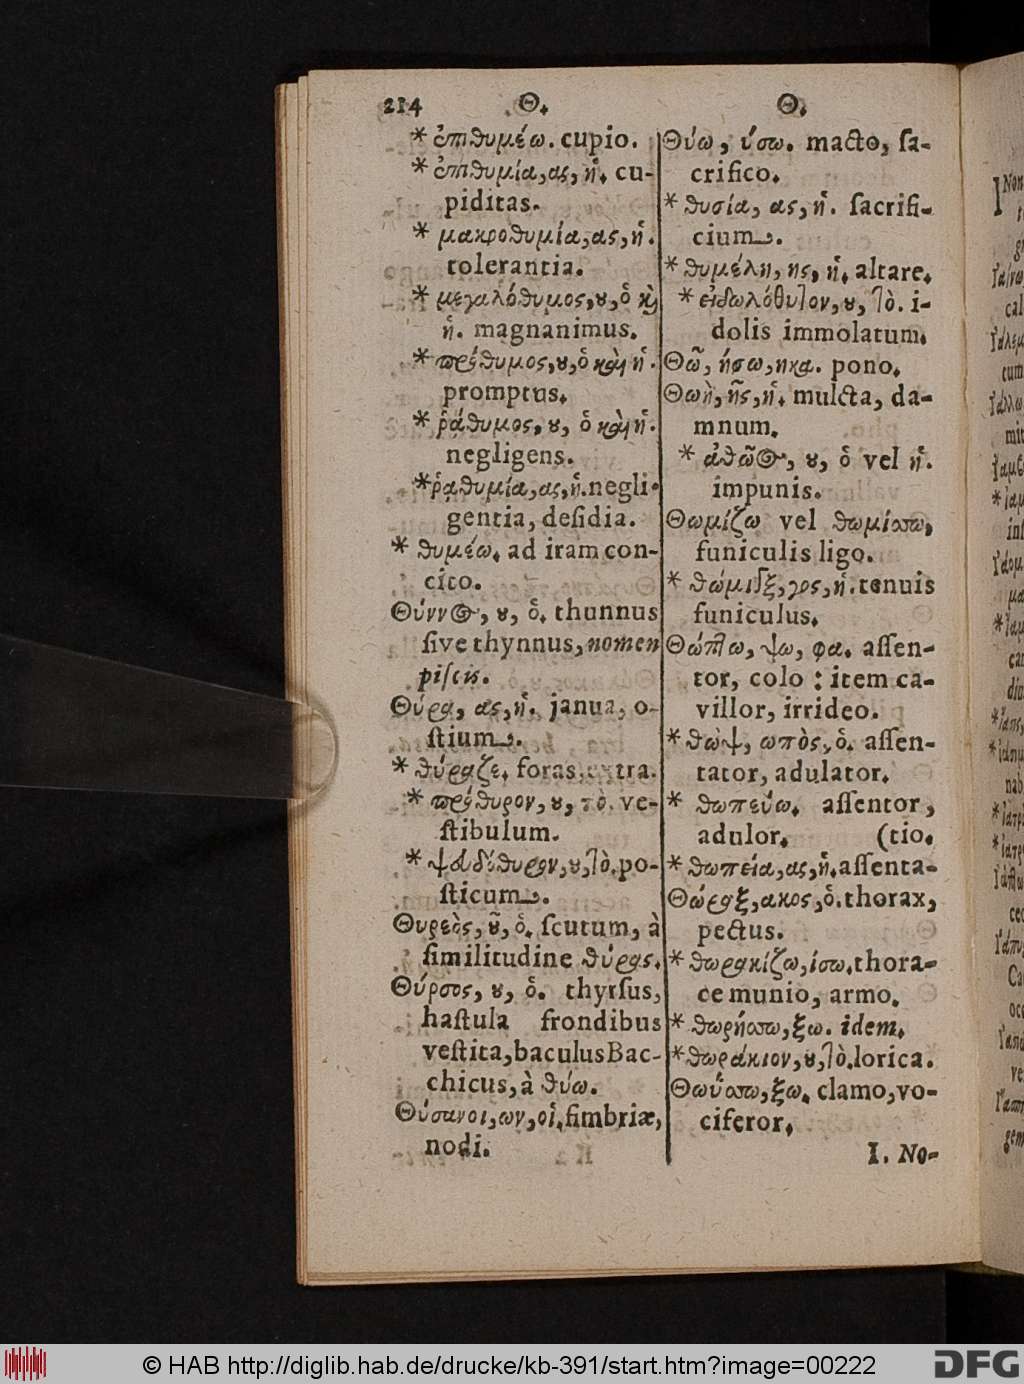 214 Θ. Θ.
* ἐπιθυμέω. cupio.
* ἐπιθυμία, ας, ἡ. cu-
piditas.
* μακροθυμία, ας, ἡ.
tolerantia.
* μεγαλόθυμος, ȣ, ὁ κὶ
ἡ. magnanimus.
* πρόθυμος, ȣ, ὁ καὶ ἡ.
promptus.
* ῥᾴθυμος, ȣ, ὁ καὶ ἡ.
negligens.
* ῥᾳθυμία, ας, ἡ. negli-
gentia, desidia.
* θυμέω. ad iram con-
cito.
Θύννος, ȣ, ὁ. thunnus
sive thynnus, nomen
piscis.
Θύρα, ας, ἡ. janua, o-
stium.
* θύραζε. foras, extra.
* πρόθυρον, ȣ, τὸ. ve-
stibulum.
* ψευδόθυρον, ȣ, τὸ. po-
sticum.
Θυρεὸς, ȣ͂, ὁ. scutum, à
similitudine θύρας.
Θύρσος, ȣ, ὁ. thyrsus,
hastula frondibus
vestita, baculus Bac-
chicus, à θύω.
Θύσανοι, ων, οἱ. fimbriæ,
nodi.
Θύω, ύσω. macto, sa-
crifico.
* θυσία, ας, ἡ. sacrifi-
cium.
* θυμέλη, ης, ἡ. altare.
* εἰδωλόθυτον, ȣ, τὸ. i-
dolis immolatum.
Θῶ, ήσω, ηκα. pono.
Θωὴ, ῆς, ἡ. mulcta, da-
mnum.
* ἀθῶος, ȣ, ὁ vel ἡ.
impunis.
Θωμίζω vel θωμίσσω,
funiculis ligo.
* θώμιγξ, γος, ἡ. tenuis
funiculus.
Θώπτω, ψω, φα. assen-
tor, colo : item ca-
villor, irrideo.
* θὼψ, ωπὸς, ὁ. assen-
tator, adulator.
* θωπεύω. assentor,
adulor. (tio.
* θωπεία, ας, ἡ. assenta-
Θώραξ, ακος, ὁ. thorax,
pectus.
* θωρακίζω, ίσω. thora-
ce munio, armo.
* θωρήσσω, ξω. idem.
* θωράκιον, ȣ, τὸ. lorica.
Θωΰσσω, ξω. clamo, vo-
ciferor.
I. No-
© HAB http://diglib.hab.de/drucke/kb-391/start.htm?image=00222
DFG